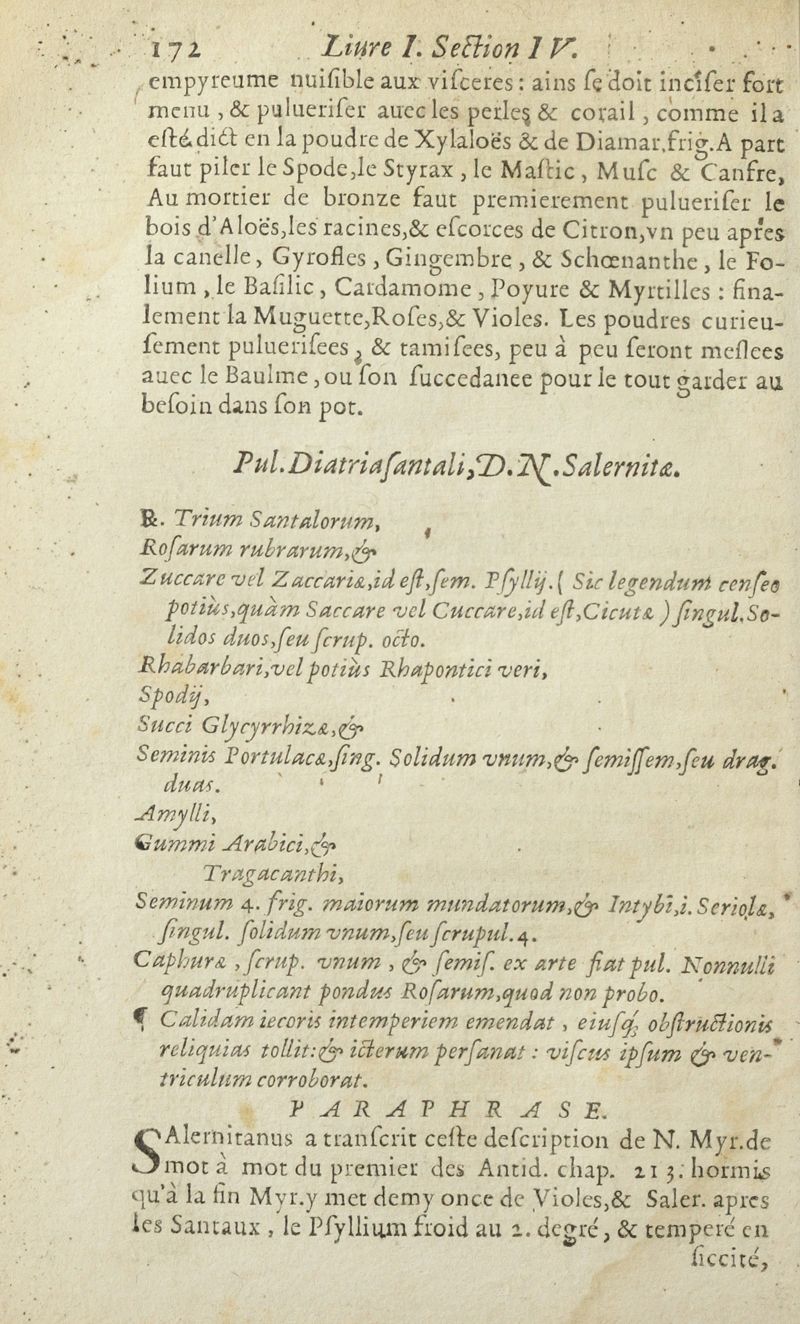 172 Liure I. Section IV.
empyreume nuiſible aux viſceres : ains ſe doit inciſer fort
menu , & pulueriſer auec les perles & corail , comme il a
eſté dict en la poudre de Xylaloës & de Diamar.frig. A part
faut piler le Spode,le Styrax , le Maſtic , Muſc & Canfre,
Au mortier de bronze faut premierement puluerifer le
bois d'Aloës,les racines,& eſcorces de Citron,vn peu apres
la canelle, Gyrofles , Gingembre , & Schœnanthe , le Fo-
lium , le Baſilic , Cardamome , Poyure & Myrtilles : fina-
lement la Muguette,Roſes,& Violes. Les poudres curieu-
ſement pulueriſees , & tamiſees, peu à peu ſeront meſlees
auec le Baulme , ou ſon ſuccedanee pour le tout garder au
beſoin dans ſon pot.
Pul. Diatriaſantali, D. N. Salernitæ.
℞. Trium Santalorum,
Roſarum rubrarum,&
Zuccare vel Zaccariæ,id eſt,ſem. Pſyllij. ( Sic legendum cenſeo
potiùs,quàm Saccare vel Cuccare,id eſt,Cicutæ ) ſingul. So-
lidos duos,ſeu ſcrup. octo.
Rhabarbari,vel potiùs Rhapontici veri,
Spodij,
Succi Glycyrrhizæ,&
Seminis Portulacæ,ſing. Solidum vnum,& ſemiſſem,ſeu drag.
duas.
Amylli,
Gummi Arabici,&
Tragacanthi,
Seminum 4. frig. maiorum mundatorum,& Intybi,i. Seriolæ,
ſingul. ſolidum vnum,ſeu ſcrupul. 4.
Caphuræ , ſcrup. vnum , & ſemiſ. ex arte fiat pul. Nonnulli
quadruplicant pondus Roſarum,quod non probo.
¶ Calidam iecoris intemperiem emendat , eiuſq; obſtructionis
reliquias tollit:& icterum perſanat : viſcus ipſum & ven-
triculum corroborat.
PARAPHRASE.
SAlernitanus a tranſcrit ceſte deſcription de N. Myr.de
mot à mot du premier des Antid. chap. 213. hormis
qu'à la fin Myr.y met demy once de Violes,& Saler. apres
les Santaux , le Pſyllium froid au 2. degré , & temperé en
ſiccité,